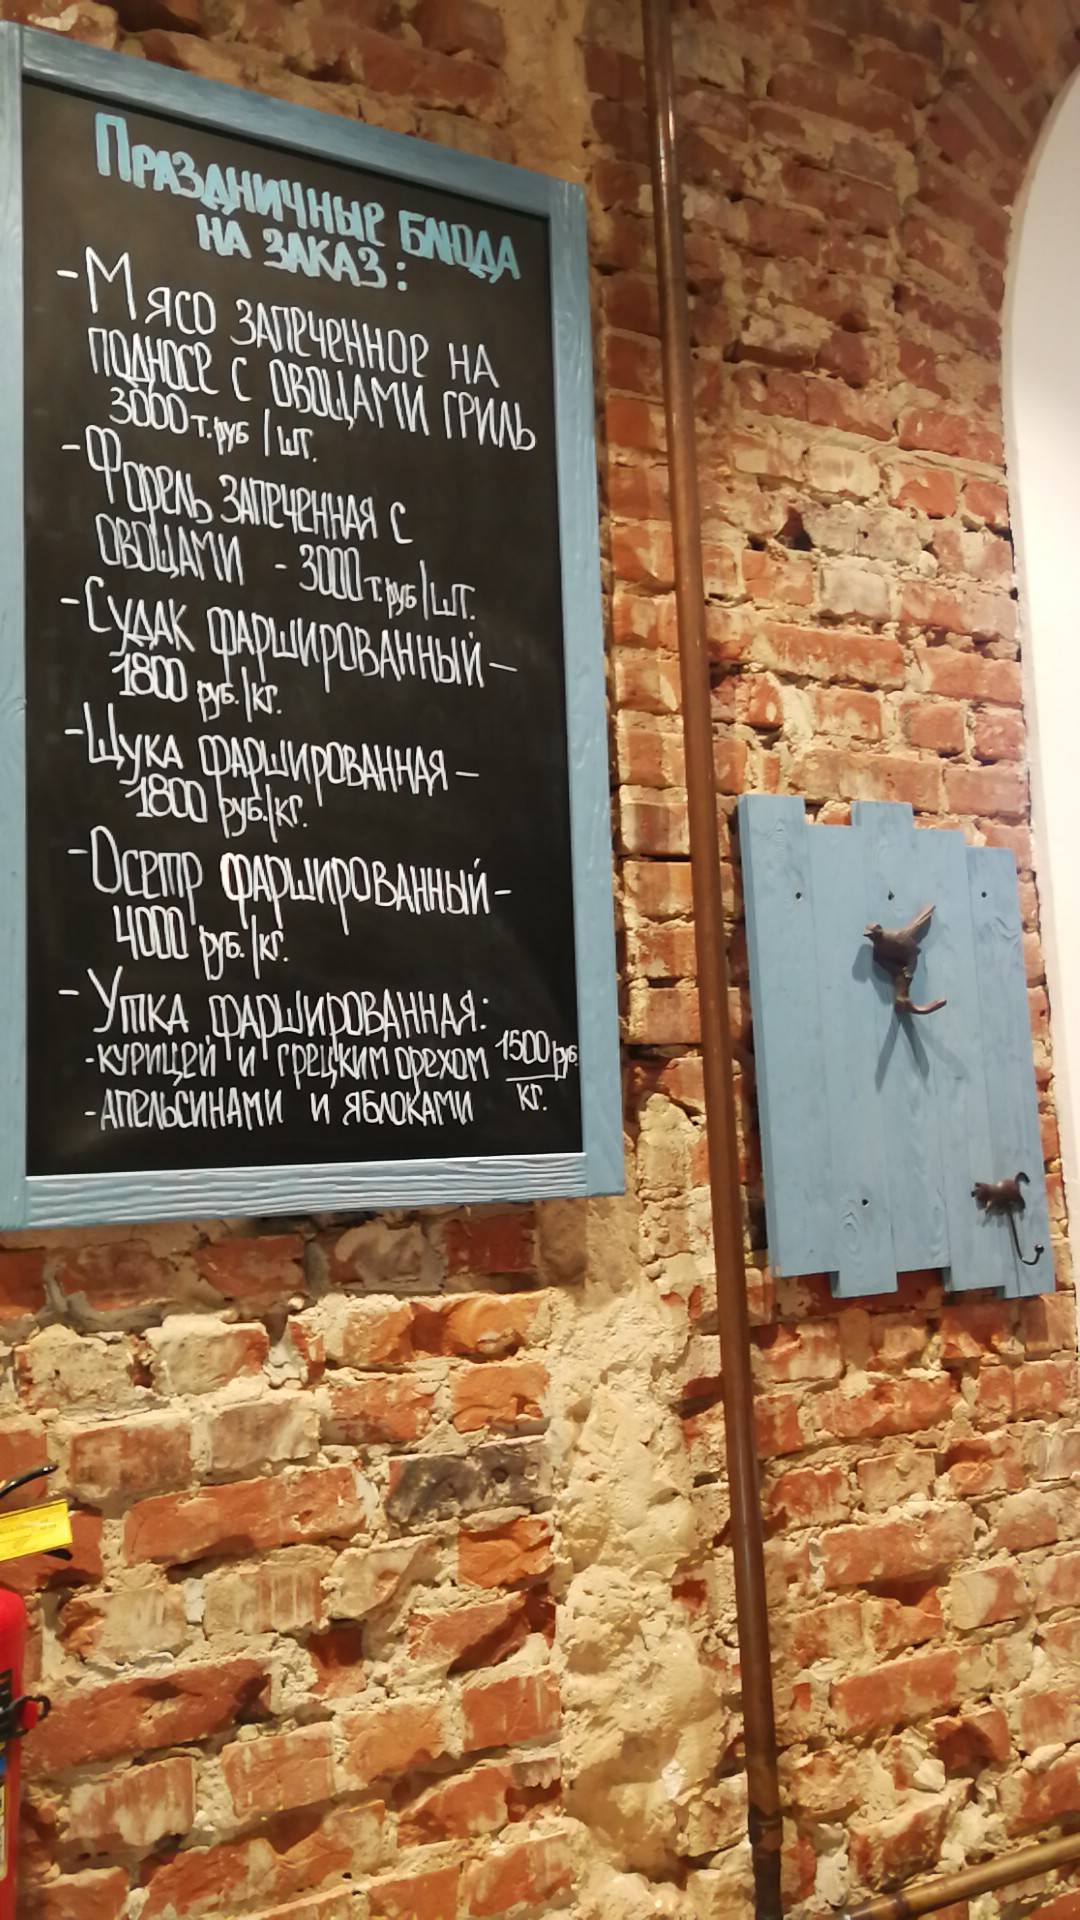 Праздничные блюда
на заказ:
- Мясо запеченное на
подносе с овощами гриль
3000 т.руб / шт.
- Форель запеченная с
овощами - 3000 т.руб/шт.
- Судак фаршированный -
1800 руб./кг.
- Щука фаршированная -
1800 руб./кг.
- Осетр фаршированный -
4000 руб./кг.
- Утка фаршированная:
- курицей и грецким орехом 1500 руб.
- апельсинами и яблоками кг.